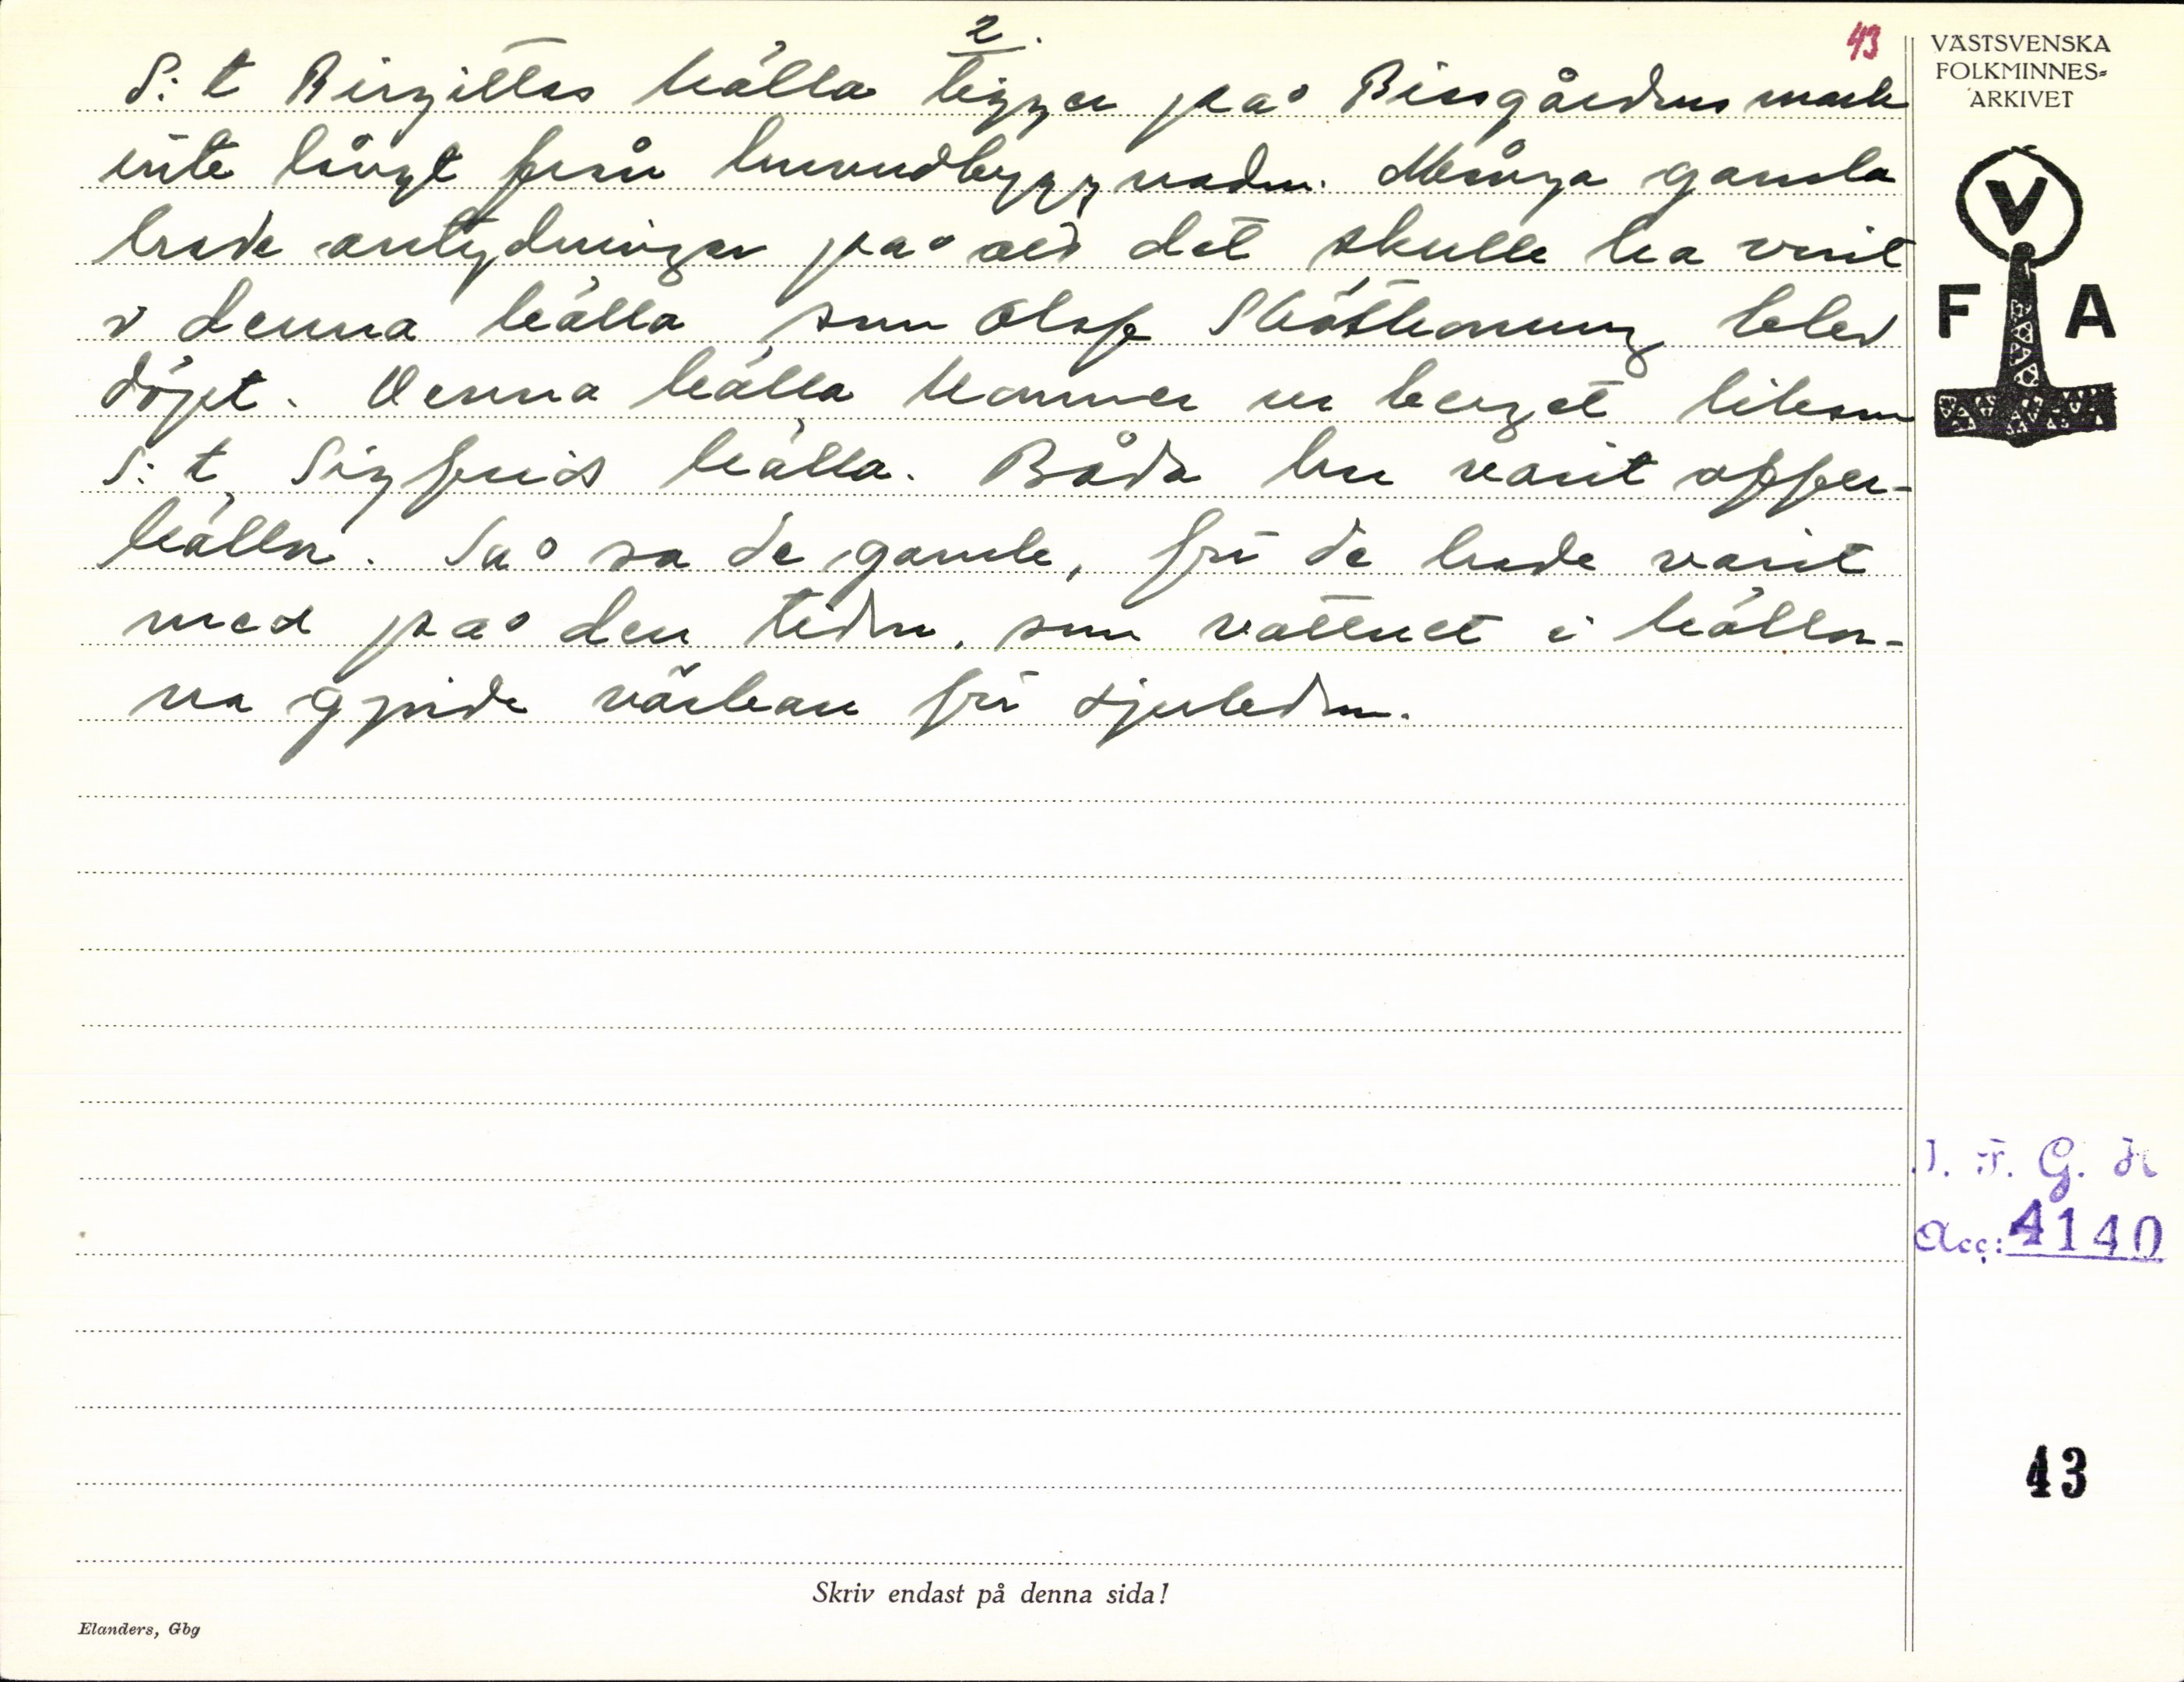 2.
43
S:t Birgittas källa ligger på Bisgårdens mark
inte långt från huvudbyggnaden. Många gamla
hade antydningar på att det skulle ha varit
i denna källa som Olof Skötkonung blev
döpt. Denna källa kommer ur berget liksom
S:t Sigfrids källa. Båda har varit offer-
källor. Så sa de gamle, för de hade varit
med på den tiden, som vattnet i källor-
na gjorde värkan för sjukdom.
VÄSTSVENSKA
FOLKMINNES-
ARKIVET
V
F A
I. F. G. H
Acc: 4140
43
Skriv endast på denna sida!
Elanders, Gbg